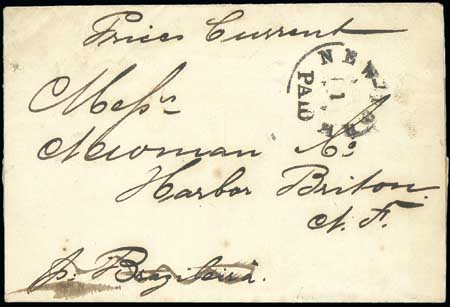 Prices Current
NEW
1
PAID
Messrs
Newman & Co
Harbor Briton.
N. F.
pr. Brazileira.